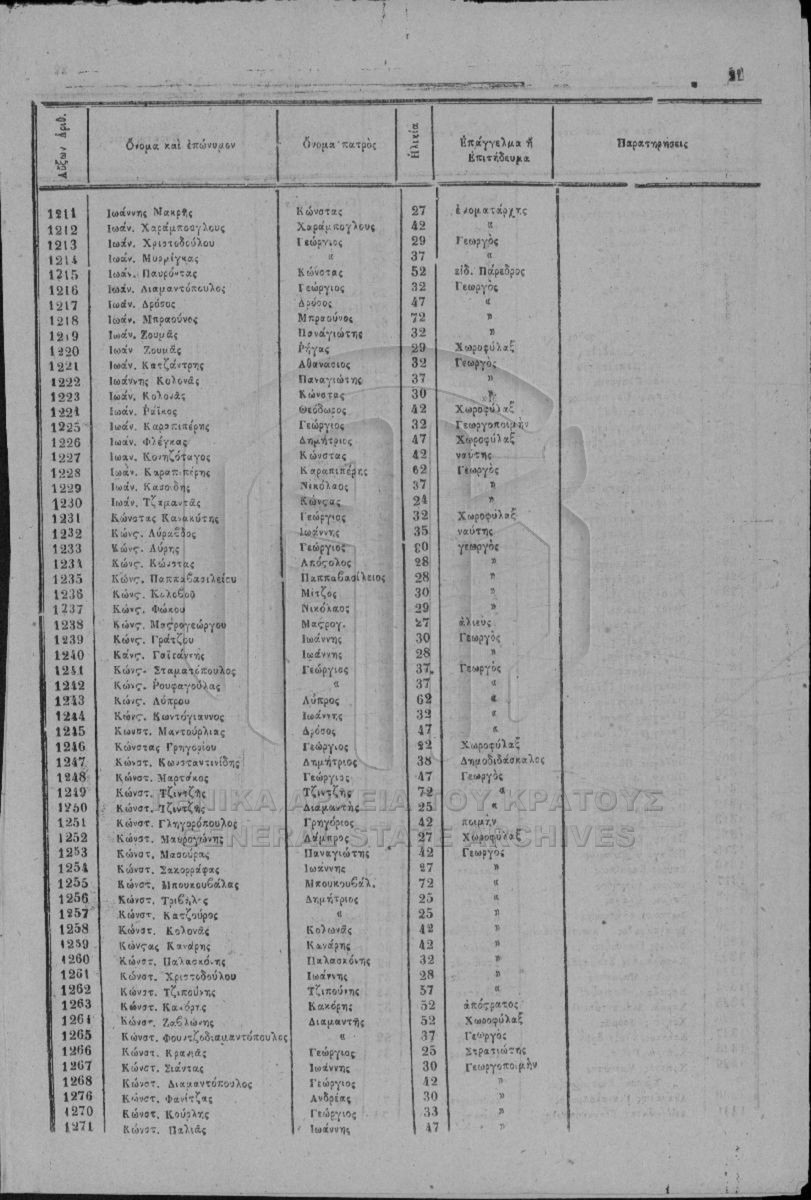 Αὔξων ἀριθ. Ὄνομα καὶ ἐπώνυμον Ὄνομα πατρὸς Ἡλικία Ἐπάγγελμα ἢ Ἐπιτήδευμα Παρατηρήσεις
1211 Ἰωάννης Μακρῆς Κώνστας 27 ἐνοματάρχης
1212 Ἰωάν. Χαράμπογλους Χαράμπογλους 42 «
1213 Ἰωάν. Χριστοδούλου Γεώργιος 29 Γεωργὸς
1214 Ἰωάν. Μυρμίγκας « 37 «
1215 Ἰωάν. Παυρόντας Κώνστας 52 εἰδ. Πάρεδρος
1216 Ἰωάν. Διαμαντόπουλος Γεώργιος 32 Γεωργὸς
1217 Ἰωάν. Δρόσος Δρόσος 47 «
1218 Ἰωάν. Μπραούνος Μπραούνος 72 »
1219 Ἰωάν. Ζουμᾶς Παναγιώτης 32 »
1220 Ἰωάν Ζουμᾶς Ρήγας 29 Χωροφύλαξ
1221 Ἰωάν. Κατζάντρης Ἀθανάσιος 32 Γεωργὸς
1222 Ἰωάννης Κολονᾶς Παναγιώτης 37 »
1223 Ἰωάν. Κολονᾶς Κώνστας 30 »
1224 Ἰωάν. Ραῖκος Θεόδωρος 42 Χωροφύλαξ
1225 Ἰωάν. Καραπιπέρης Γεώργιος 32 Γεωργοποιμὴν
1226 Ἰωάν. Φλέγκας Δημήτριος 47 Χωροφύλαξ
1227 Ἰωάν. Κονηζόταγος Κώνστας 42 ναύτης
1228 Ἰωάν. Καραπιπέρης Καραπιπέρης 62 Γεωργὸς
1229 Ἰωάν. Κασσίδης Νικόλαος 37 »
1230 Ἰωάν. Τζαμαντᾶς Κώνστας 24 »
1231 Κώνστας Κανακύτης Γεώργιος 32 Χωροφύλαξ
1232 Κώνς. Λύραδος Ἰωάννης 35 ναύτης
1233 Κώνς. Λύρης Γεώργιος 80 γεωργὸς
1234 Κώνς. Κώνστας Ἀπόστολος 28 »
1235 Κώνς. Παππαβασιλείου Παππαβασίλειος 28 »
1236 Κώνς. Κολοβοῦ Μίτζος 30 »
1237 Κώνς. Φώκου Νικόλαος 29 »
1238 Κώνς. Μαυρογεώργου Μαυρογ. 27 ἁλιεὺς
1239 Κώνς. Γράτζου Ἰωάννης 30 Γεωργὸς
1240 Κώνς. Γαϊτάνης Ἰωάννης 28 »
1241 Κώνς. Σταματόπουλος Γεώργιος 37 Γεωργὸς
1242 Κώνς. Ρουφαγούλας « 37 «
1243 Κώνς. Λύπρου Λύπρος 62 «
1244 Κώνς. Κωντόγιαννος Ἰωάννης 32 «
1245 Κωνστ. Μαντούρλιας Δρόσος 47 «
1246 Κώνστας Γρηγορίου Γεώργιος 22 Χωροφύλαξ
1247 Κώνστ. Κωνσταντινίδης Δημήτριος 38 Δημοδιδάσκαλος
1248 Κώνστ. Μαρτσκος Γεώργιος 47 Γεωργὸς
1249 Κώνστ. Τζιντζῆς Τζιντζῆς 72 «
1250 Κώνστ. Τζιντζῆς Διαμαντῆς 25 «
1251 Κώνστ. Γληγορόπουλος Γρηγόριος 42 ποιμὴν
1252 Κώνστ. Μαυρογώνης Λάμπρος 27 Χωροφύλαξ
1253 Κώνστ. Μασούρας Παναγιώτης 42 Γεωργὸς
1254 Κώνστ. Σακορράφας Ἰωάννης 27 »
1255 Κώνστ. Μπουκουβάλας Μπουκουβάλ. 72 «
1256 Κώνστ. Τριβήλς Δημήτριος 25 «
1257 Κώνστ. Κατζοῦρος « 25 «
1258 Κώνστ. Κολονᾶς Κολωνᾶς 42 »
1259 Κώνστας Κανάρης Κανάρης 42 »
1260 Κώνστ. Παλασκόνης Παλασκόνης 32 »
1261 Κώνστ. Χριστοδούλου Ἰωάννης 28 »
1262 Κώνστ. Τζιπούνης Τζιπούνης 57 «
1263 Κώνστ. Κακόρης Κακόρης 52 ἀπόστρατος
1264 Κώνστ. Ζαβλώνης Διαμαντῆς 52 Χωροφύλαξ
1265 Κώνστ. Φουντζοδιαμαντόπουλος « 37 Γεωργὸς
1266 Κώνστ. Κρανιᾶς Γεώργιος 25 Στρατιώτης
1267 Κώνστ. Σιάντας Ἰωάννης 30 Γεωργοποιμὴν
1268 Κώνστ. Διαμαντόπουλος Γεώργιος 42 »
1276 Κώνστ. Φανίτζας Ἀνδρέας 30 »
1270 Κώνστ. Κούρλης Γεώργιος 33 »
1271 Κώνστ. Παλιᾶς Ἰωάννης 47 »
ΓΕΝΙΚΑ ΑΡΧΕΙΑ ΤΟΥ ΚΡΑΤΟΥΣ
GENERAL STATE ARCHIVES